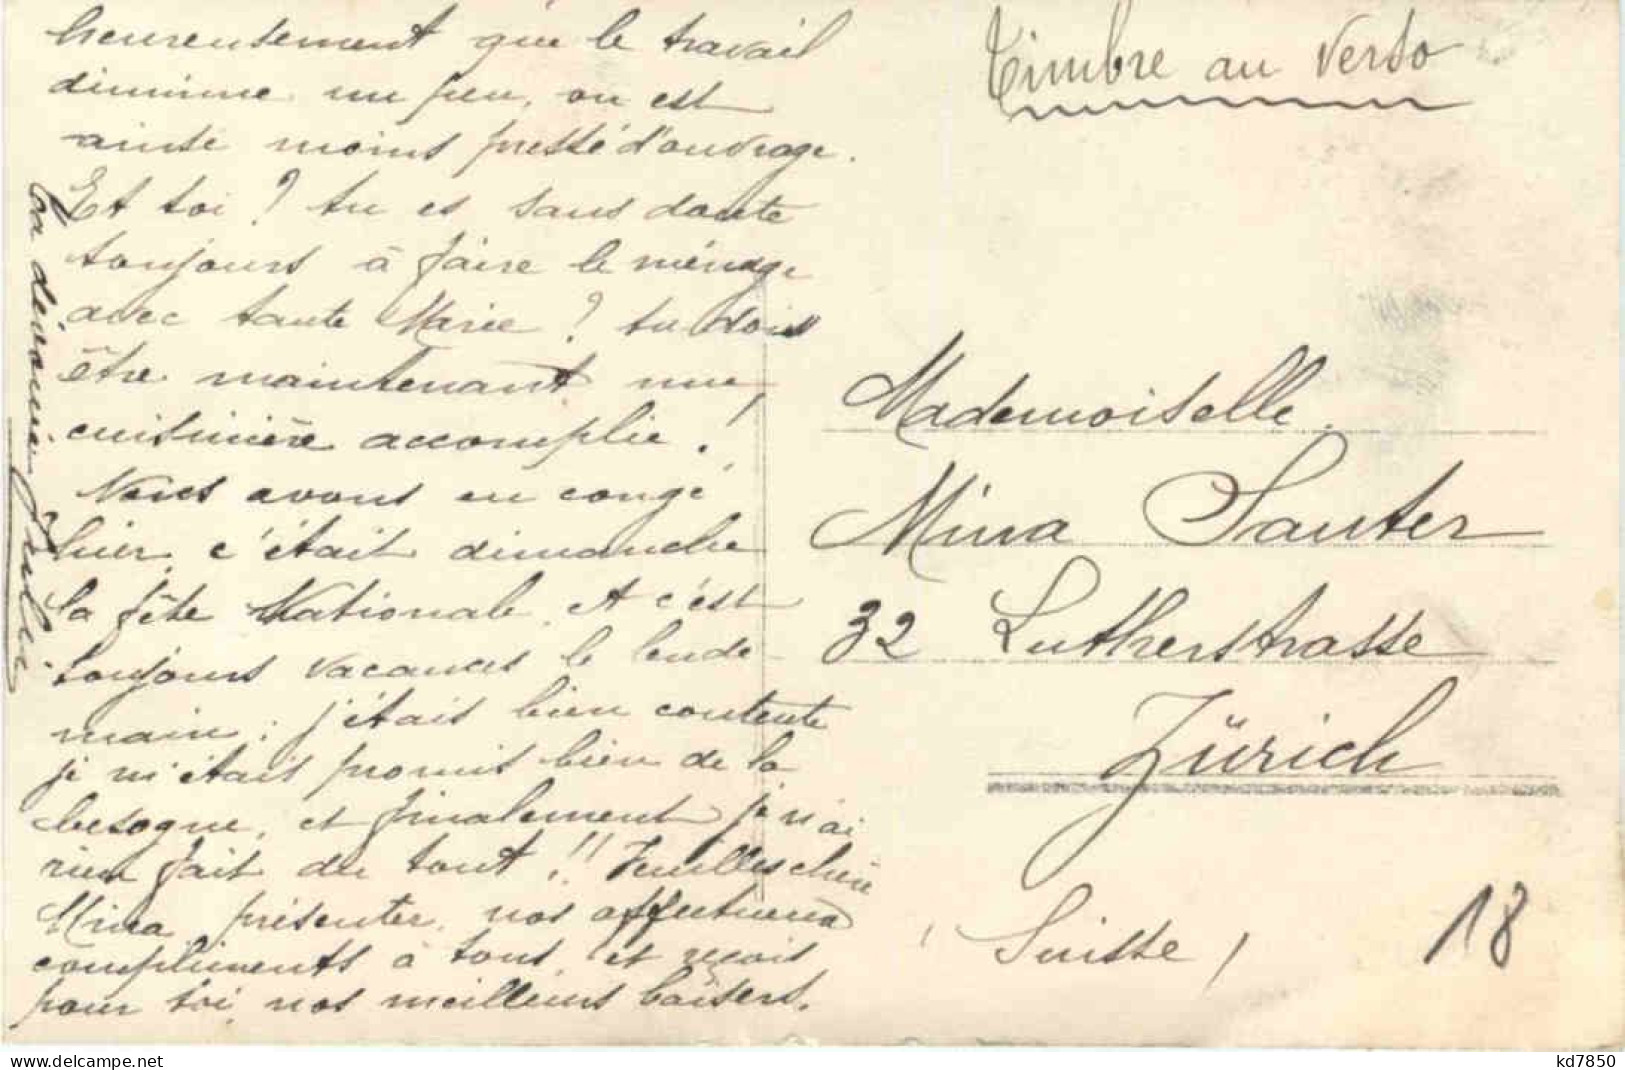 heureusement que le travail
diminue un peu, on est
ainsi moins pressé d'ouvrage.
Et toi ? tu es sans doute
toujours à faire le ménage
avec tante Marie ? tu dois
être maintenant une
cuisinière accomplie !
Nous avons eu congé
hier, c'était dimanche
la fête Nationale et c'est
toujours vacances le lende-
main ; j'étais bien contente
je m'étais promis bien de la
besogne, et finalement je n'ai
rien fait du tout !! Veuilles chère
Mina présenter nos affectueux
compliments à tous et reçois
pour toi nos meilleurs baisers.
Ta dévouée Julie
Timbre au verso
Mademoiselle
Mina Sauter
32 Lutherstrasse
Zürich
(Suisse)
18
https://www.delcampe.net
kd7850